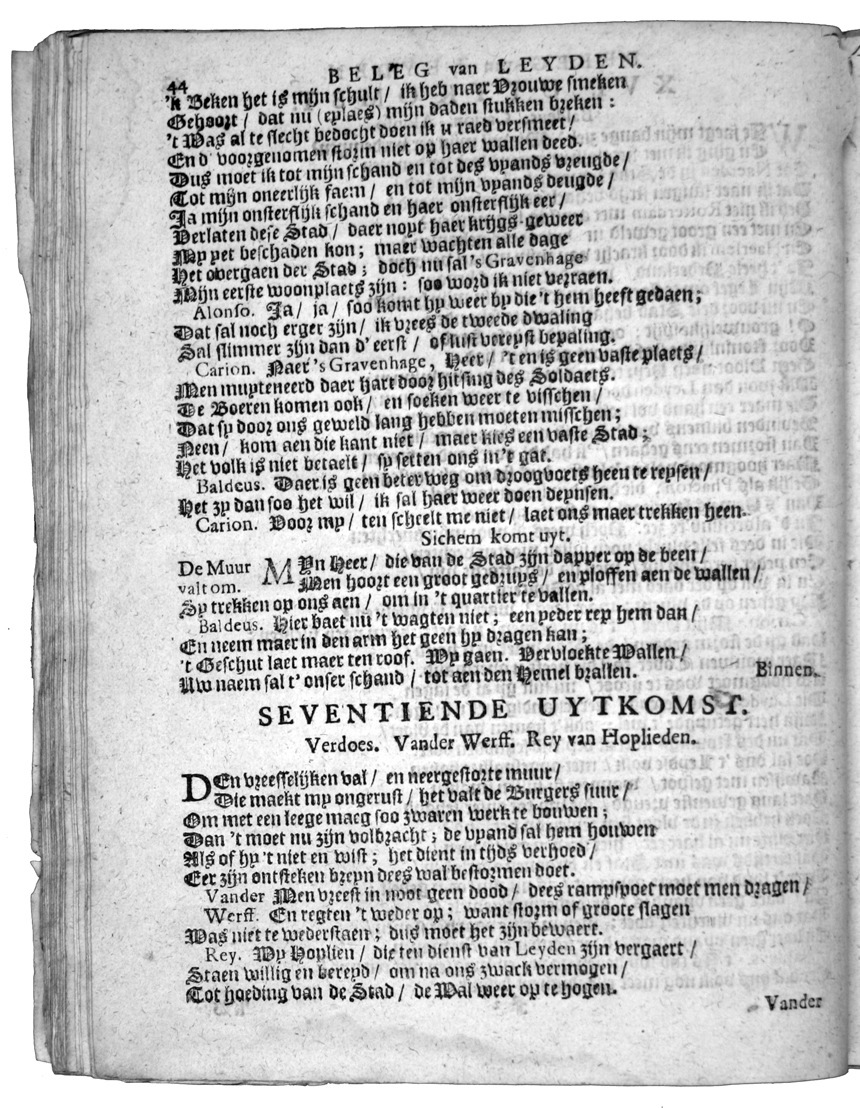 44
BELEG van LEYDEN.
'k Beken het is mijn schult / ik heb naer Vrouwe smeken
Gehoort / dat nu (eplaes) mijn daden stukken breken :
't Was al te slecht bedocht doen ik u raed versmeet /
En d' voorgenomen storm niet op haer wallen deed.
Dus moet ik tot mijn schand en tot des vyands vreugde /
Tot mijn oneerlijk faem / en tot mijn vyands deugde /
Ja mijn onsterflijk schand en haer onsterflijk eer /
Verlaten dese Stad / daer noyt haer krijgs-geweer
My yet beschaden kon ; maer wachten alle dage
Het overgaen der Stad ; doch nu sal 's Gravenhage
Mijn eerste woonplaets zijn : soo word ik niet verraen.
Alonso. Ja / ja / soo komt hy weer by die 't hem heeft gedaen ;
Dat sal noch erger zijn / ik vrees de tweede dwaling
Sal slimmer zijn dan d' eerst / of lust vereyst bepaling.
Carion. Naer 's Gravenhage, Heer / 't en is geen vaste plaets /
Men muyteneerd daer hart door hitsing des Soldaets.
De Boeren komen ook / en soeken weer te visschen /
Dat sy door ons geweld lang hebben moeten misschen ;
Neen / kom aen die kant niet / maer kies een vaste Stad ;
Het volk is niet betaelt / sy setten ons in 't gat.
Baldeus. Daer is geen beter weg om droogvoets heen te reysen /
Het zy dan soo het wil / ik sal haer weer doen deynsen.
Carion. Voor my / ten scheelt me niet / laet ons maer trekken heen.
Sichem komt uyt.
De Muur valt om.
MYn Heer / die van de Stad zijn dapper op de been /
Men hoort een groot gedruys / en ploffen aen de wallen /
Sy trekken op ons aen / om in 't quartier te vallen.
Baldeus. Hier baet nu 't wagten niet ; een yeder rep hem dan /
En neem maer in den arm het geen hy dragen kan ;
't Geschut laet maer ten roof. Wy gaen. Vervloekte Wallen /
Uw naem sal t' onser schand / tot aen den Hemel brallen.
Binnen.
SEVENTIENDE UYTKOMST.
Verdoes. Vander Werff. Rey van Hoplieden.
DEn vreesselijken val / en neergestorte muur /
Die maekt my ongerust / het valt de Burgers suur /
Om met een leege maeg soo zwaren werk te bouwen ;
Dan 't moet nu zijn volbracht ; de vyand sal hem houwen
Als of hy 't niet en wist ; het dient in tijds verhoed /
Eer zijn ontsteken breyn dees wal bestormen doet.
Vander Men vreest in noot geen dood / dees rampspoet moet men dragen /
Werff. En regten 't weder op ; want storm of groote slagen
Was niet te wederstaen ; dus moet het zijn bewaert.
Rey. Wy Hoplien / die ten dienst van Leyden zijn vergaert /
Staen willig en bereyd / om na ons zwack vermogen /
Tot hoeding van de Stad / de Wal weer op te hogen.
Vander